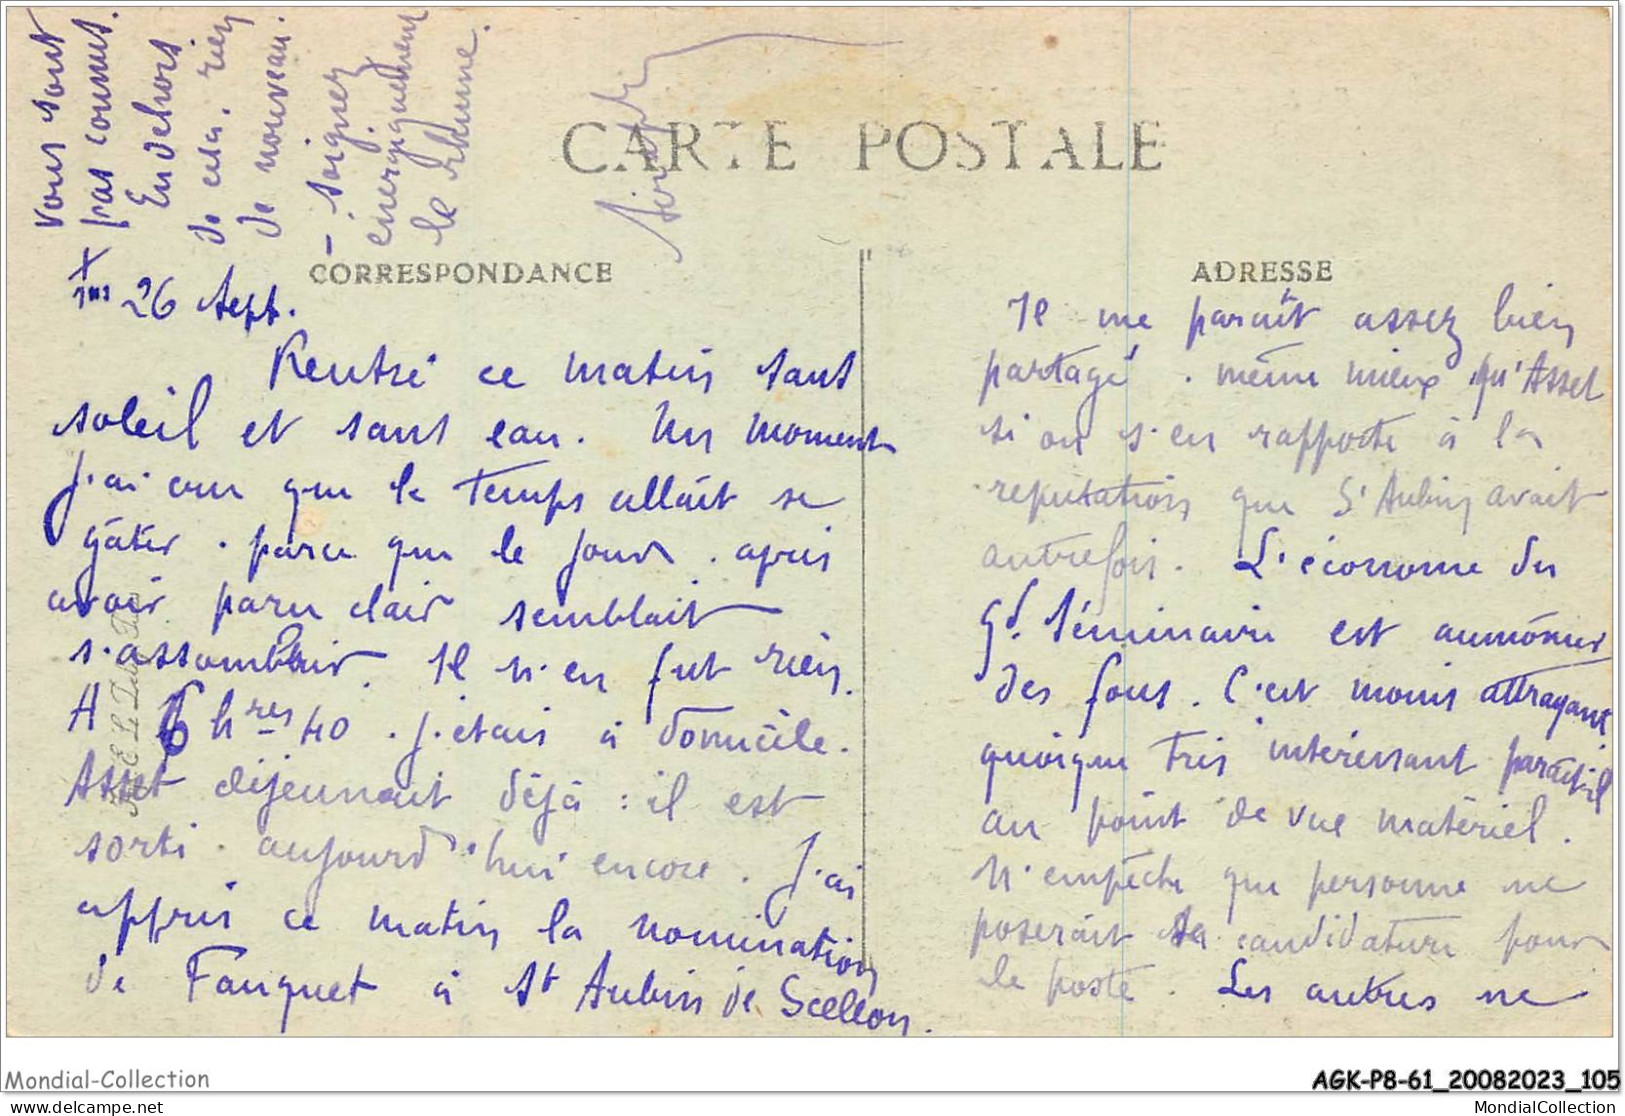 CARTE POSTALE
CORRESPONDANCE
ADRESSE
26 Sept.
Rentré ce matin sans
soleil et sans eau. Un moment
j'ai cru que le temps allait se
gâter. parce que le jour. après
avoir paru clair semblait
s'assombrir. Il n'en fut rien.
A 6 hres 40. j'étais à domicile.
Asset déjeunait déjà : il est
sorti. aujourd'hui encore. J'ai
appris ce matin la nomination
de Fauquet à St Aubin de Scellon.
Il me paraît assez bien
partagé. même mieux qu'Asset
si on s'en rapporte à la
réputation que St Aubin avait
autrefois. L'économe du
Gd. Séminaire est aumônier
des fous. C'est moins attrayant
quoique très intéressant paraît-il
au point de vue matériel.
N'empêche que personne ne
poserait sa candidature pour
le poste. Les autres ne
vous sont
pas connus.
En dehors
de cela. rien
de nouveau.
- Soignez
énergiquement
le rhume.
Mondial-Collection
AGK-P8-61_20082023_105
www.delcampe.net
MondialCollection